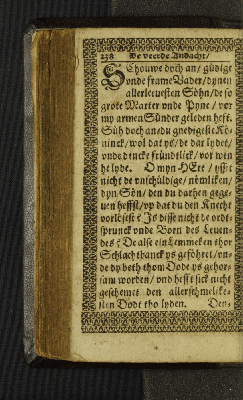 238 De veerde Andacht/
SChouwe doch an/ güdige
vnde frame Vader/ dynen
allerleuesten Söhn/ de so
grote Marter vnde Pyne / vor
my armen Sünder geleden hefft.
Süh doch an/ du gnedigeste Kö-
ninck/ wol dat ys/ de dar lydet/
vnde dencke fründtlick/ vor wen
he lyde. O myn HEre / ysset
nicht de vnschüldige/ nömliken/
dyn Sön/ den du darhen gege-
uen heffst/ vp dat du den Knecht
vorlösest? Js disse nicht de ordt-
sprunck vnde Born des Leuen-
des? De alse ein Lemmeken thor
Schlachtbanck ys geföhret/ vn-
de dy beth thom Dode ys gehor-
sam worden/ vnd hefft sick nicht
geschemet den allerschmelike-
sten Dodt tho lyden. Den-